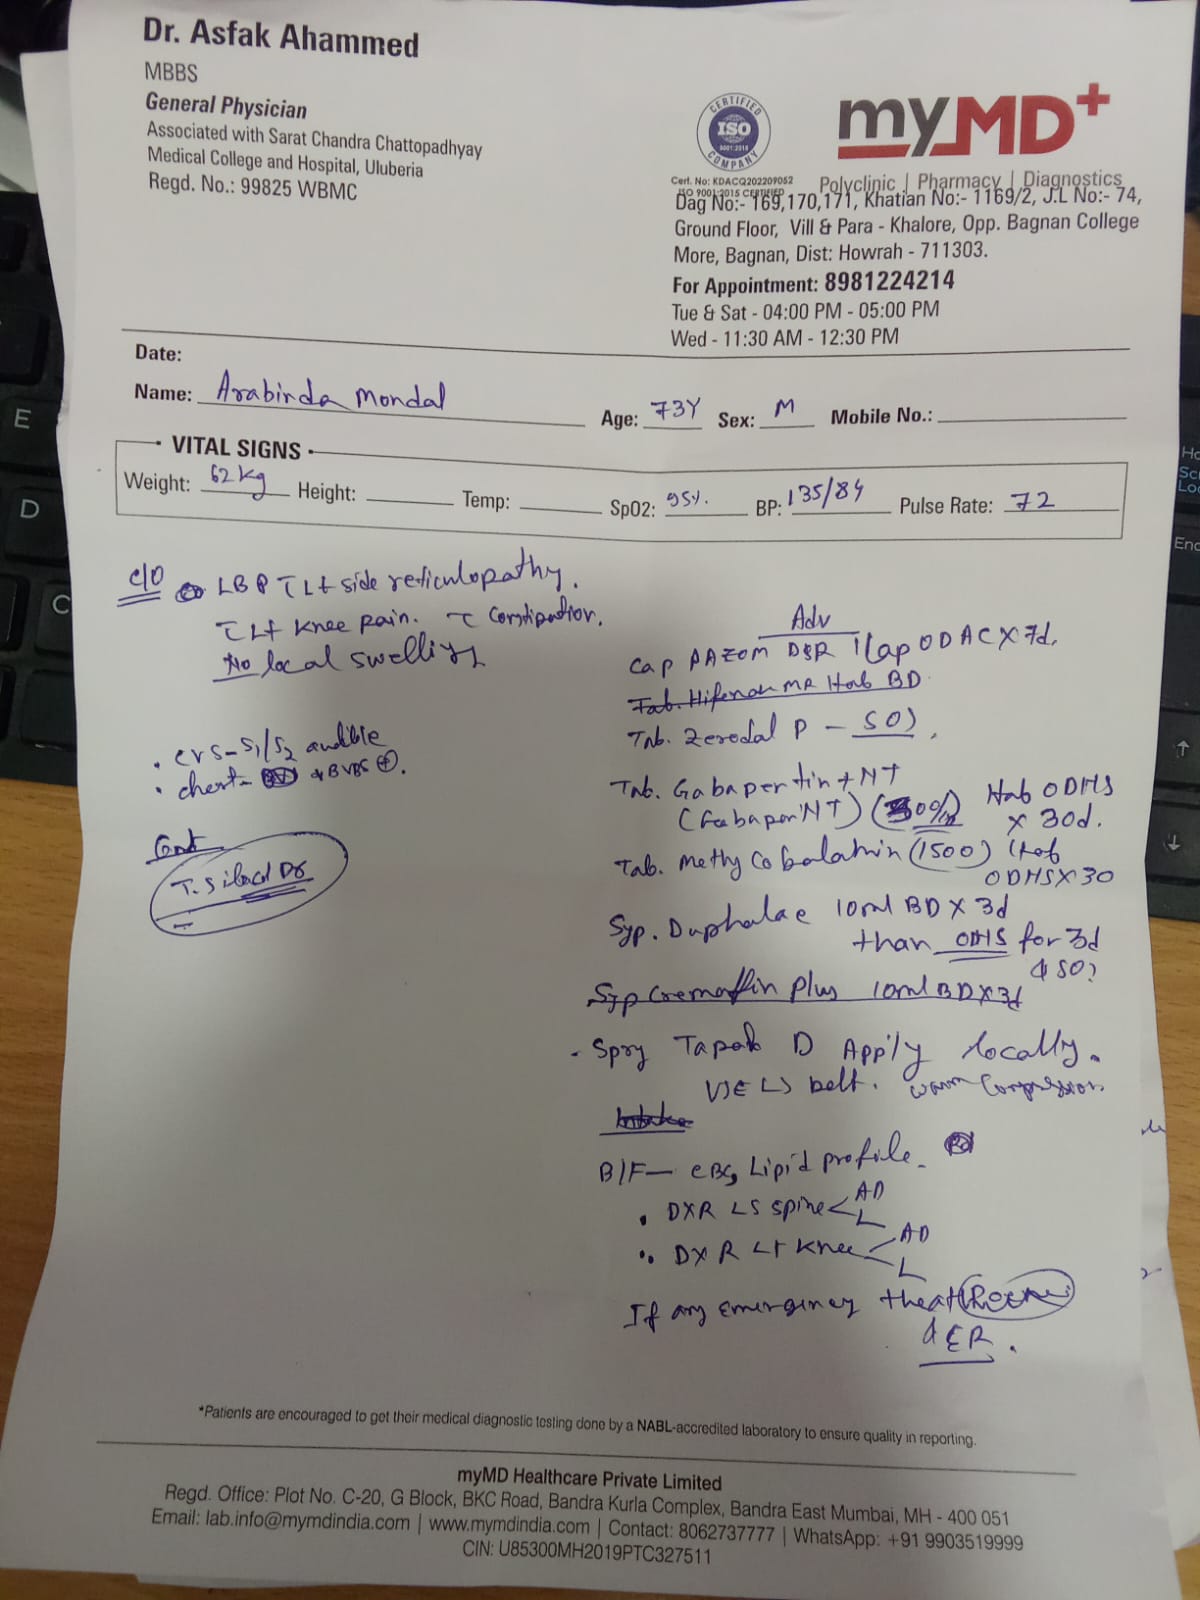 Dr. Asfak Ahammed
MBBS
General Physician
Associated with Sarat Chandra Chattopadhyay
Medical College and Hospital, Uluberia
Regd. No.: 99825 WBMC
CERTIFIED
ISO
9001:2015
COMPANY
Cert. No: KDACQ202209052
ISO 9001:2015 CERTIFIED
myMD+
Polyclinic | Pharmacy | Diagnostics
Dag No:- 169,170,171, Khatian No:- 1169/2, J.L No:- 74,
Ground Floor, Vill & Para - Khalore, Opp. Bagnan College
More, Bagnan, Dist: Howrah - 711303.
For Appointment: 8981224214
Tue & Sat - 04:00 PM - 05:00 PM
Wed - 11:30 AM - 12:30 PM
Date:
Name: Arabinda Mondal Age: 73Y Sex: M Mobile No.:
VITAL SIGNS
Weight: 62 kg Height: Temp: SpO2: 95%. BP: 135/84 Pulse Rate: 72
c/o LBP c Lt side reticulopathy.
c Lt Knee pain. c Constipation.
No local swelling
. CVS - S1/S2 audible
. chest - BVBS +.
T.
Adv
Cap PAZOM DSR 1 Cap OD AC X 7d.
Tab. MR 1tab BD
Tab. Zerodol P - SOS.
Tab. Gabapentin + NT
(GabapinNT) 1tab ODHS
X 30d.
Tab. Methylcobalamin (1500) 1tab
ODHS X 30
Syp. Duphalac 10ml BD X 3d
than ODHS for 3d
& SOS
Syp Cremaffin Plus 10ml BD X 3d
- Spry D Apply locally.
USE LS belt. warm compression
Intake
B/F - CBG, Lipid profile.
. DXR LS spine < AP
L
. DXR Lt Knee < AP
L
If any emergency
ER.
*Patients are encouraged to get their medical diagnostic testing done by a NABL-accredited laboratory to ensure quality in reporting.
myMD Healthcare Private Limited
Regd. Office: Plot No. C-20, G Block, BKC Road, Bandra Kurla Complex, Bandra East Mumbai, MH - 400 051
Email: lab.info@mymdindia.com | www.mymdindia.com | Contact: 8062737777 | WhatsApp: +91 9903519999
CIN: U85300MH2019PTC327511